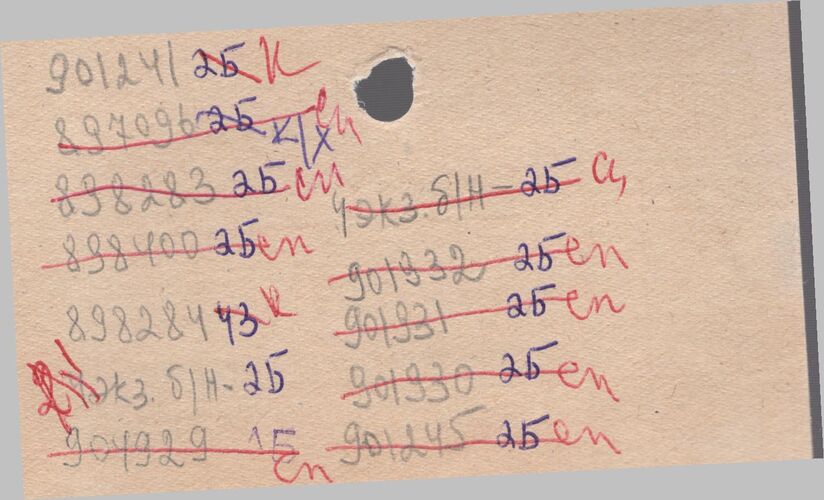 901241 2Б К
897096 2Б к/х сп
898283 2Б сп
898400 2Б сп
898284 ЧЗ К
экз. б/н - 2Б
901929 1Б сп
4 экз. б/н - 2Б
901932 2Б сп
901931 2Б сп
901930 2Б сп
901245 2Б сп